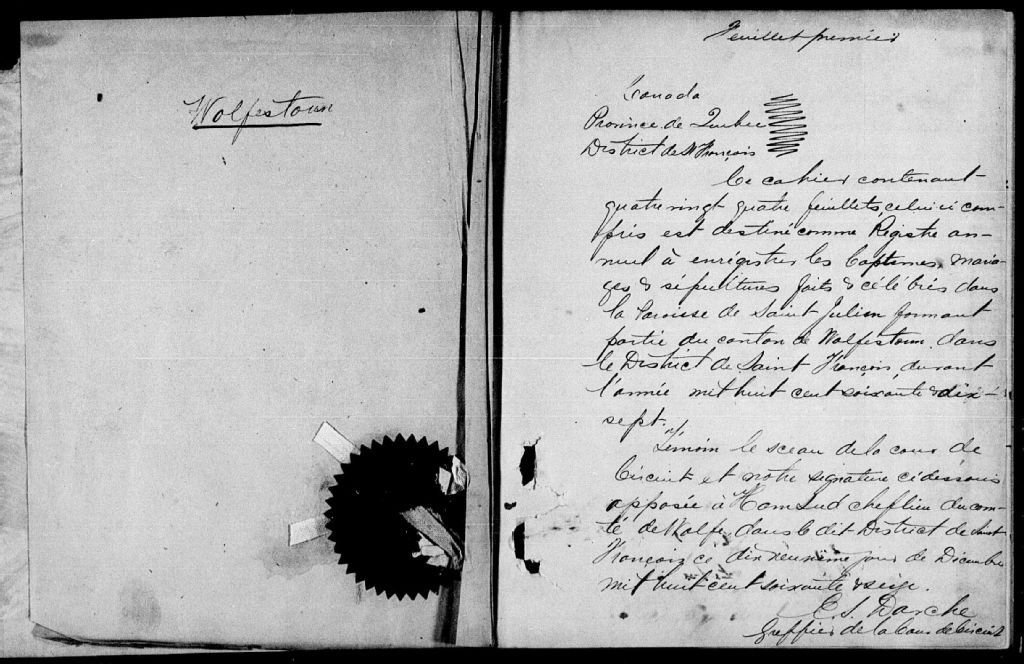 Wolfestown
Feuillet premier
Canada
Province de Quebec
District de St François
Ce cahier contenant
quatre vingt quatre feuillets, celui ci com-
pris est destiné comme Registre an-
nuel à enrégistrer les baptemes, maria-
ges & sépultures faits & célébrés dans
la Paroisse de Saint Julien formant
partie du canton de Wolfestown, dans
le District de Saint François, durant
l'année mil huit cent soixante & dix-
sept.
Témoin le sceau de la cour de
Circuit et notre signature ci dessous
apposée à Ham Sud chef lieu du com-
té de Wolfe, dans le dit District de Saint
François ce dix neuvième jour de Décembre
mil huit cent soixante & seize.
C. S. Darche
Greffier de la Cour de Circuit